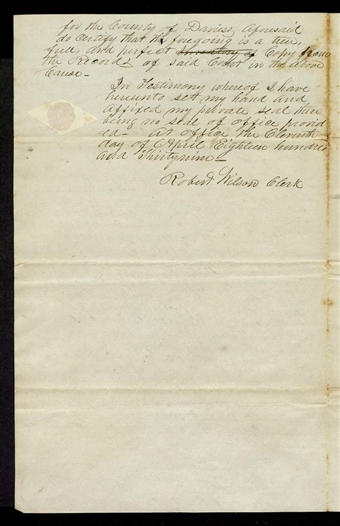 for the County of Daviess, Aforesaid
do certify that the foregoing is a true,
full and perfect Inventory of Copy from
the Records of said Court in the above
Cause-
In Testimony whereof I have
hereunto set my hand and
affixed my private seal there
being no seal of office provid
ed- At office the Eleventh
day of April Eighteen hundred
and Thirtynine-
Robert Wilson Clerk